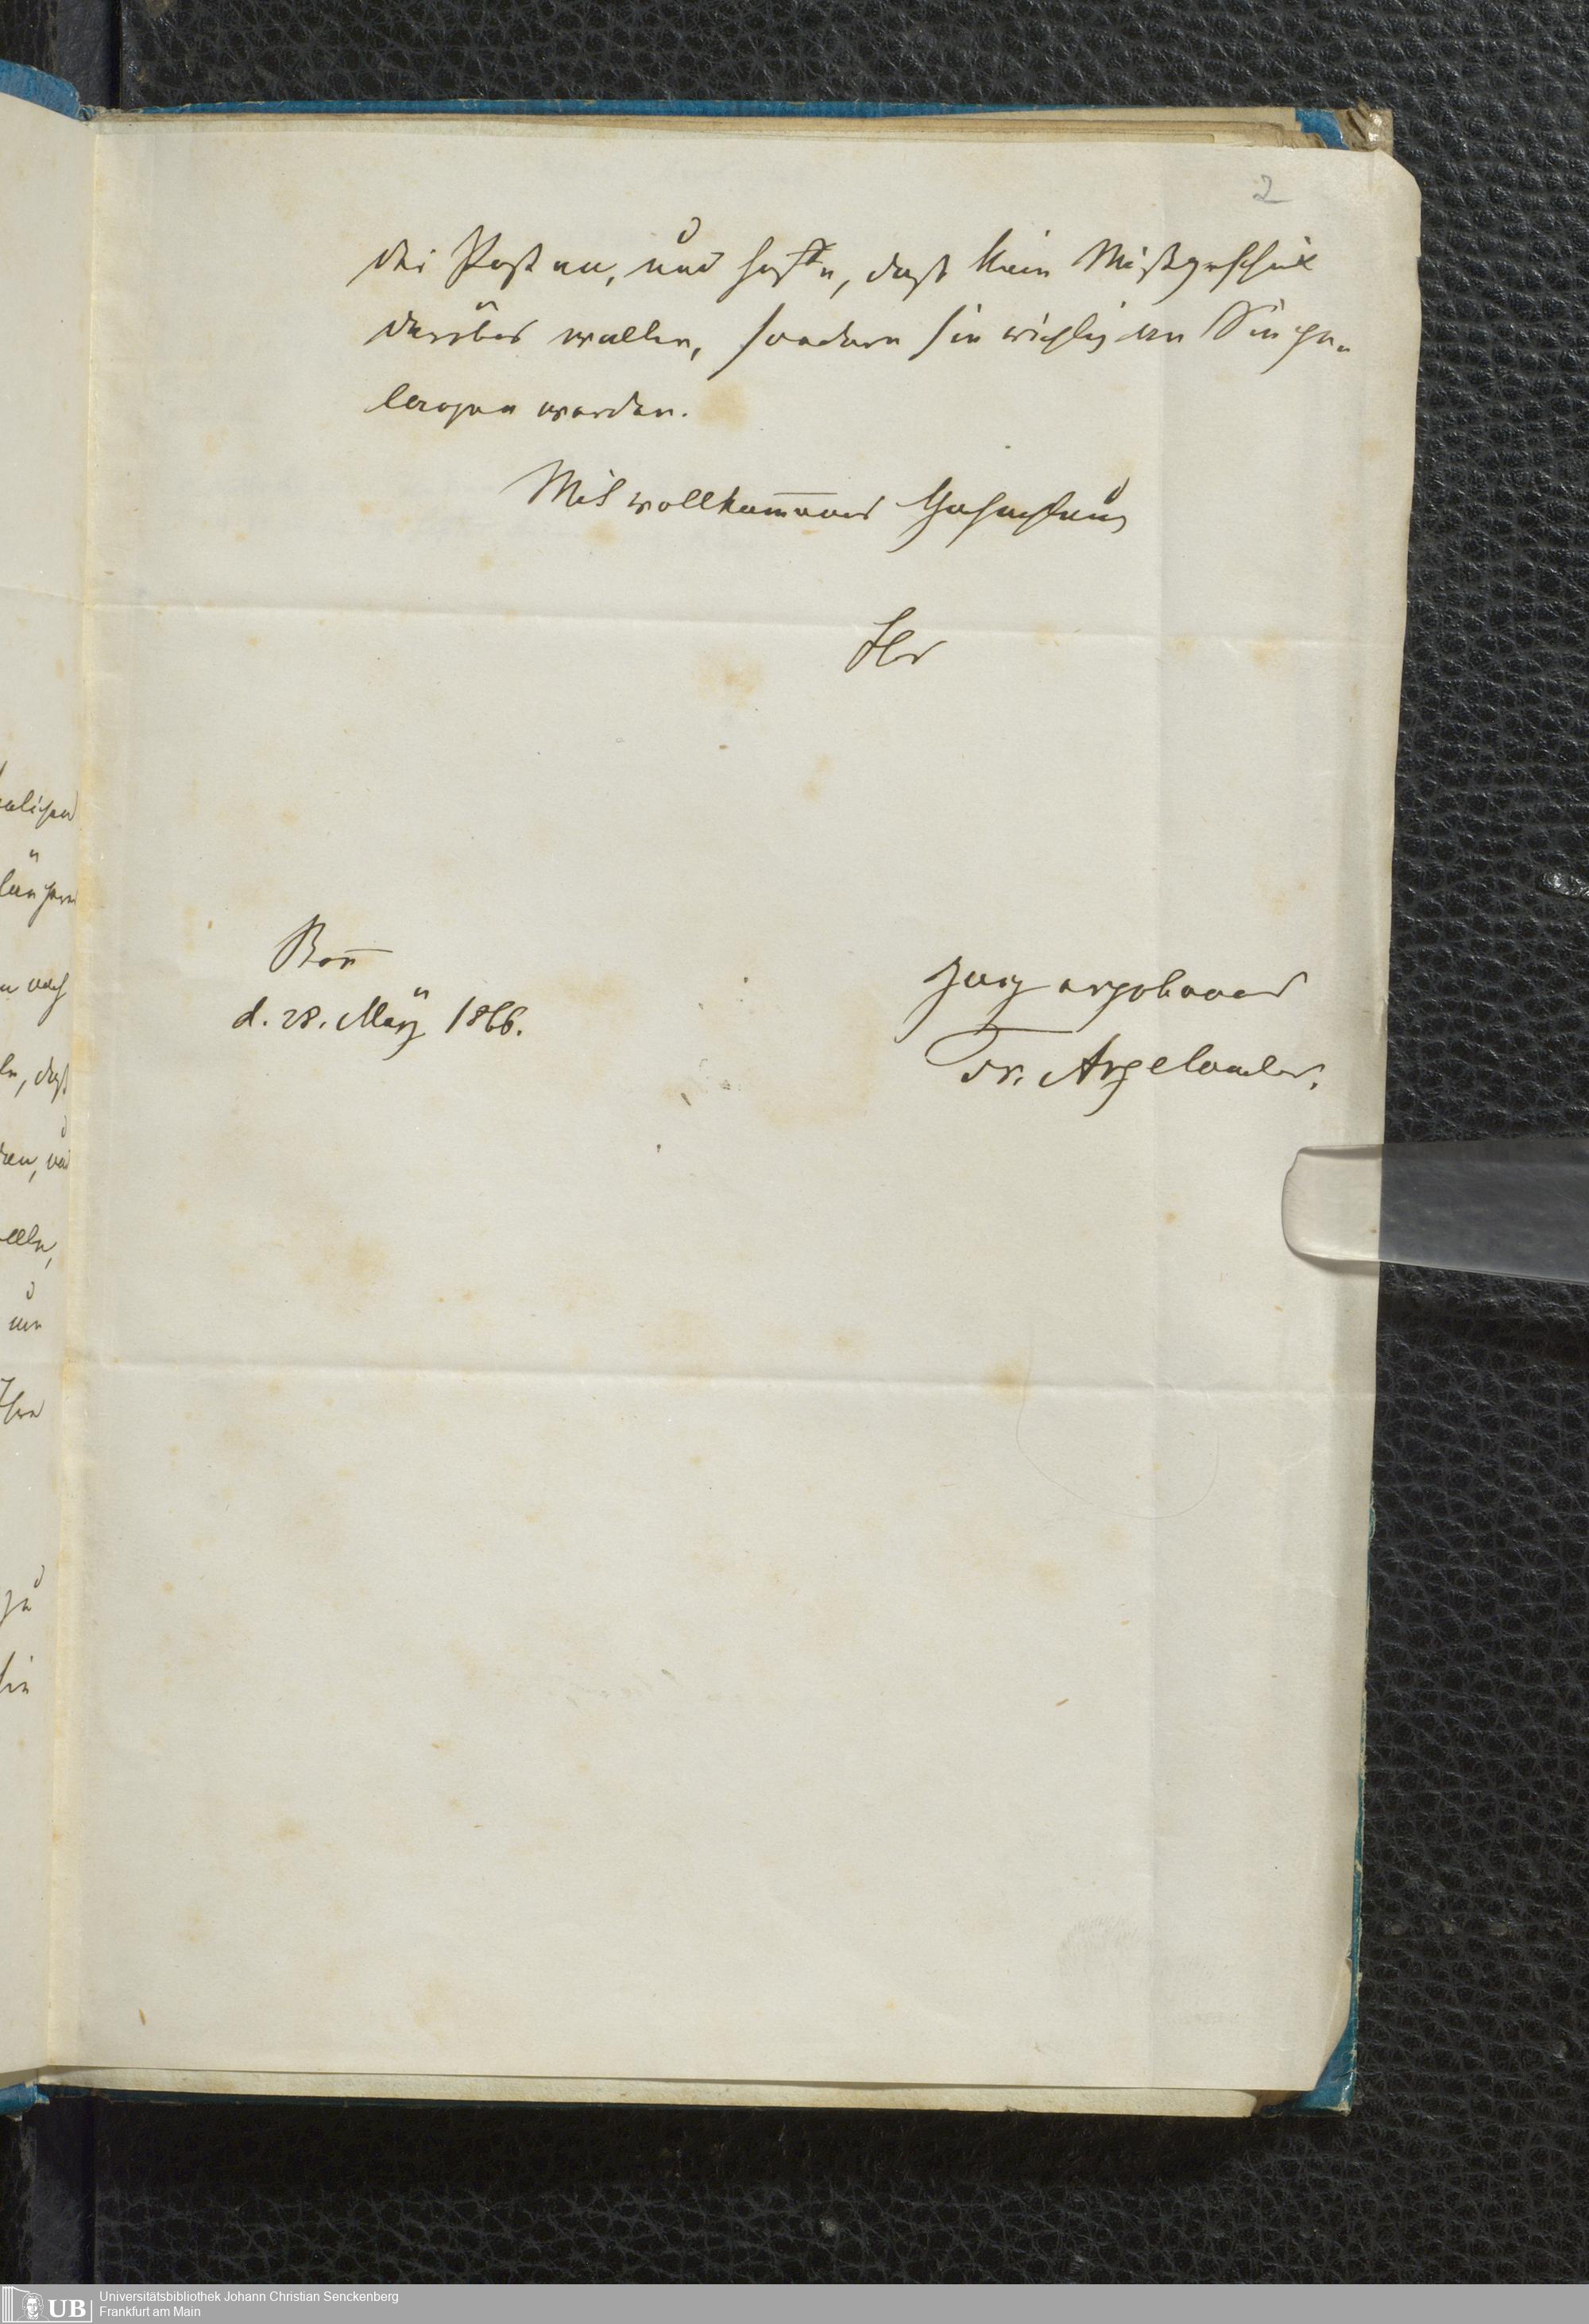 2
die Post an, und hoffe, daß kein Mißgeschick
darüber walten, sondern sie richtig an Sie ge-
langen werden.
Mit vollkom̅ener Hochachtung
Ihr
Bon̅
d. 28. März 1866.
ganz ergebener
Fr. Argelander.
n noch
daß
zu
Universitätsbibliothek Johann Christian Senckenberg
UB
Frankfurt am Main